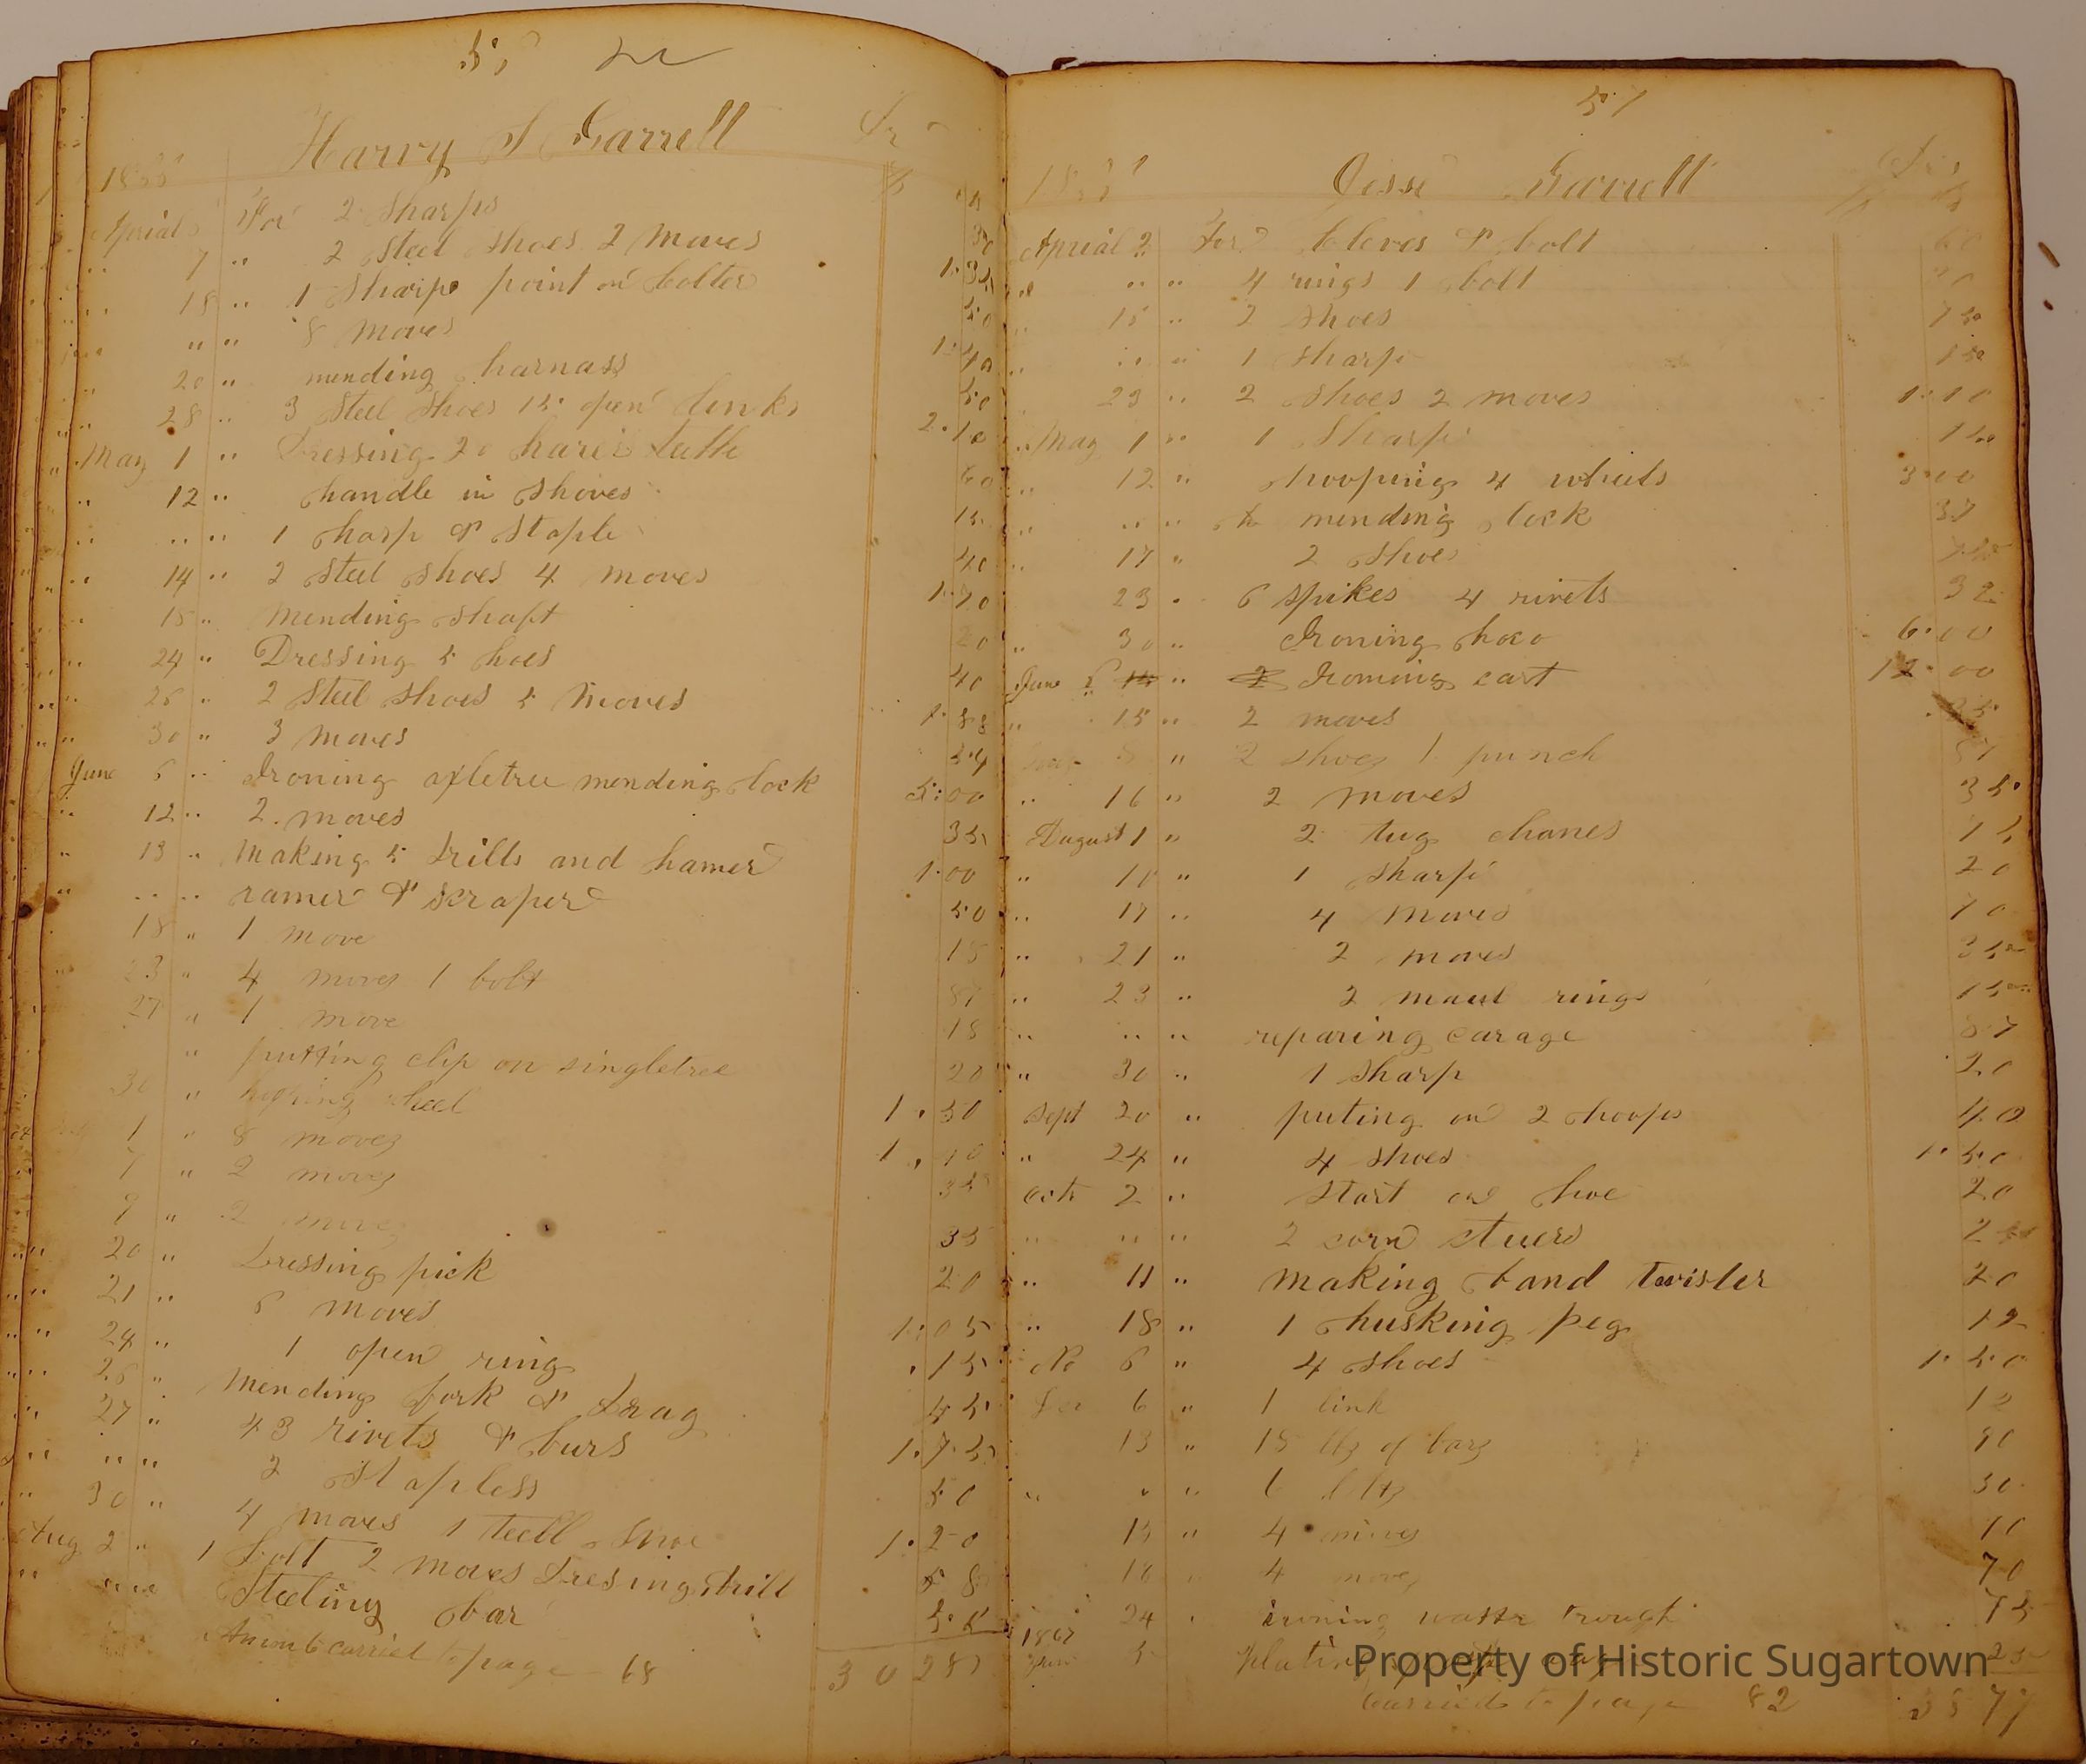 Harvy S Garrell Dr
Aprial For 2 Sharps 30
7 " 2 Steel Shoes 2 Moves 1.35
18 " 1 Sharp point on Colter 50
" " 8 Moves 1.40
20 " mending harnass 50
28 " 3 Steel Shoes 15 open links 2.10
May 1 " Dressing 20 harrow teathe 60
12 " handle in Shovel 15
" " 1 hasp & Staple 40
14 " 2 Steel Shoes 4 moves 1.70
15 " Mending Shaft 20
24 " Dressing 5 hoes 40
26 " 2 Steel Shoes 5 Moves 1.88
30 " 3 Moves 54
June 6 " Ironing axletree mending lock 5:00
12 " 2 moves 35
13 " Making 5 drills and hamer 1.00
" " ramer & Scraper 50
18 " 1 move 18
23 " 4 moves 1 bolt 87
27 " 1 move 18
" putting clip on singletree 20
30 " hooping wheel 1.50
1 " 8 moves 1.40
7 " 2 moves 35
9 " 2 moves 35
20 " Dressing pick 20
21 " 6 moves 1:05
24 " 1 open ring 15
26 " Mending fork & Drag 45
27 " 43 rivets & burs 1.75
" " 2 Stapless 50
30 " 4 moves 1 Steell Shoe 1.20
Aug 2 " 1 bolt 2 moves Dresing drill
" " Steeling bar
Amont carried to page 68 30 28
51
Jesse Garrell Dr
Aprial 2 For Cleves & bolt 60
" " 4 rings 1 bolt
15 " 2 Shoes 75
" " 1 Sharp 15
23 " 2 Shoes 2 moves 1.10
May 1 " 1 Sharp 15
12 " hooping 4 wheels 3.00
" " mending lock 37
17 " 2 Shoes 75
23 " 6 spikes 4 rivets 32
" 30 " Ironing hoco 6.00
June 6 " Ironing cart 12.00
" 15 " 2 moves 35
" 2 shoes 1 punch
" 16 " 2 moves 35
August 1 " 2 tug chanes 15
" 11 " 1 Sharp 20
" 17 " 4 Moves 70
" 21 " 2 moves 35
" 23 " 2 maul rings 15
" " " reparing carage 87
" 30 " 1 Sharp 20
Sept 20 " puting on 2 hoops 40
" 24 " 4 Shoes 1.50
Octs 2 " Start on hoe 20
" " " 2 corn
" 11 " making band twister 20
" 18 " 1 husking peg 12
No 6 " 4 Shoes 1.50
Dec 6 " 1 link 12
13 " 18 lbs of bars 90
" " " 6 bolts 30
15 " 4 moves 70
18 " 4 moves 70
24 " ironing watter trough 75
1867
Carried to page 82 38 77
Property of Historic Sugartown